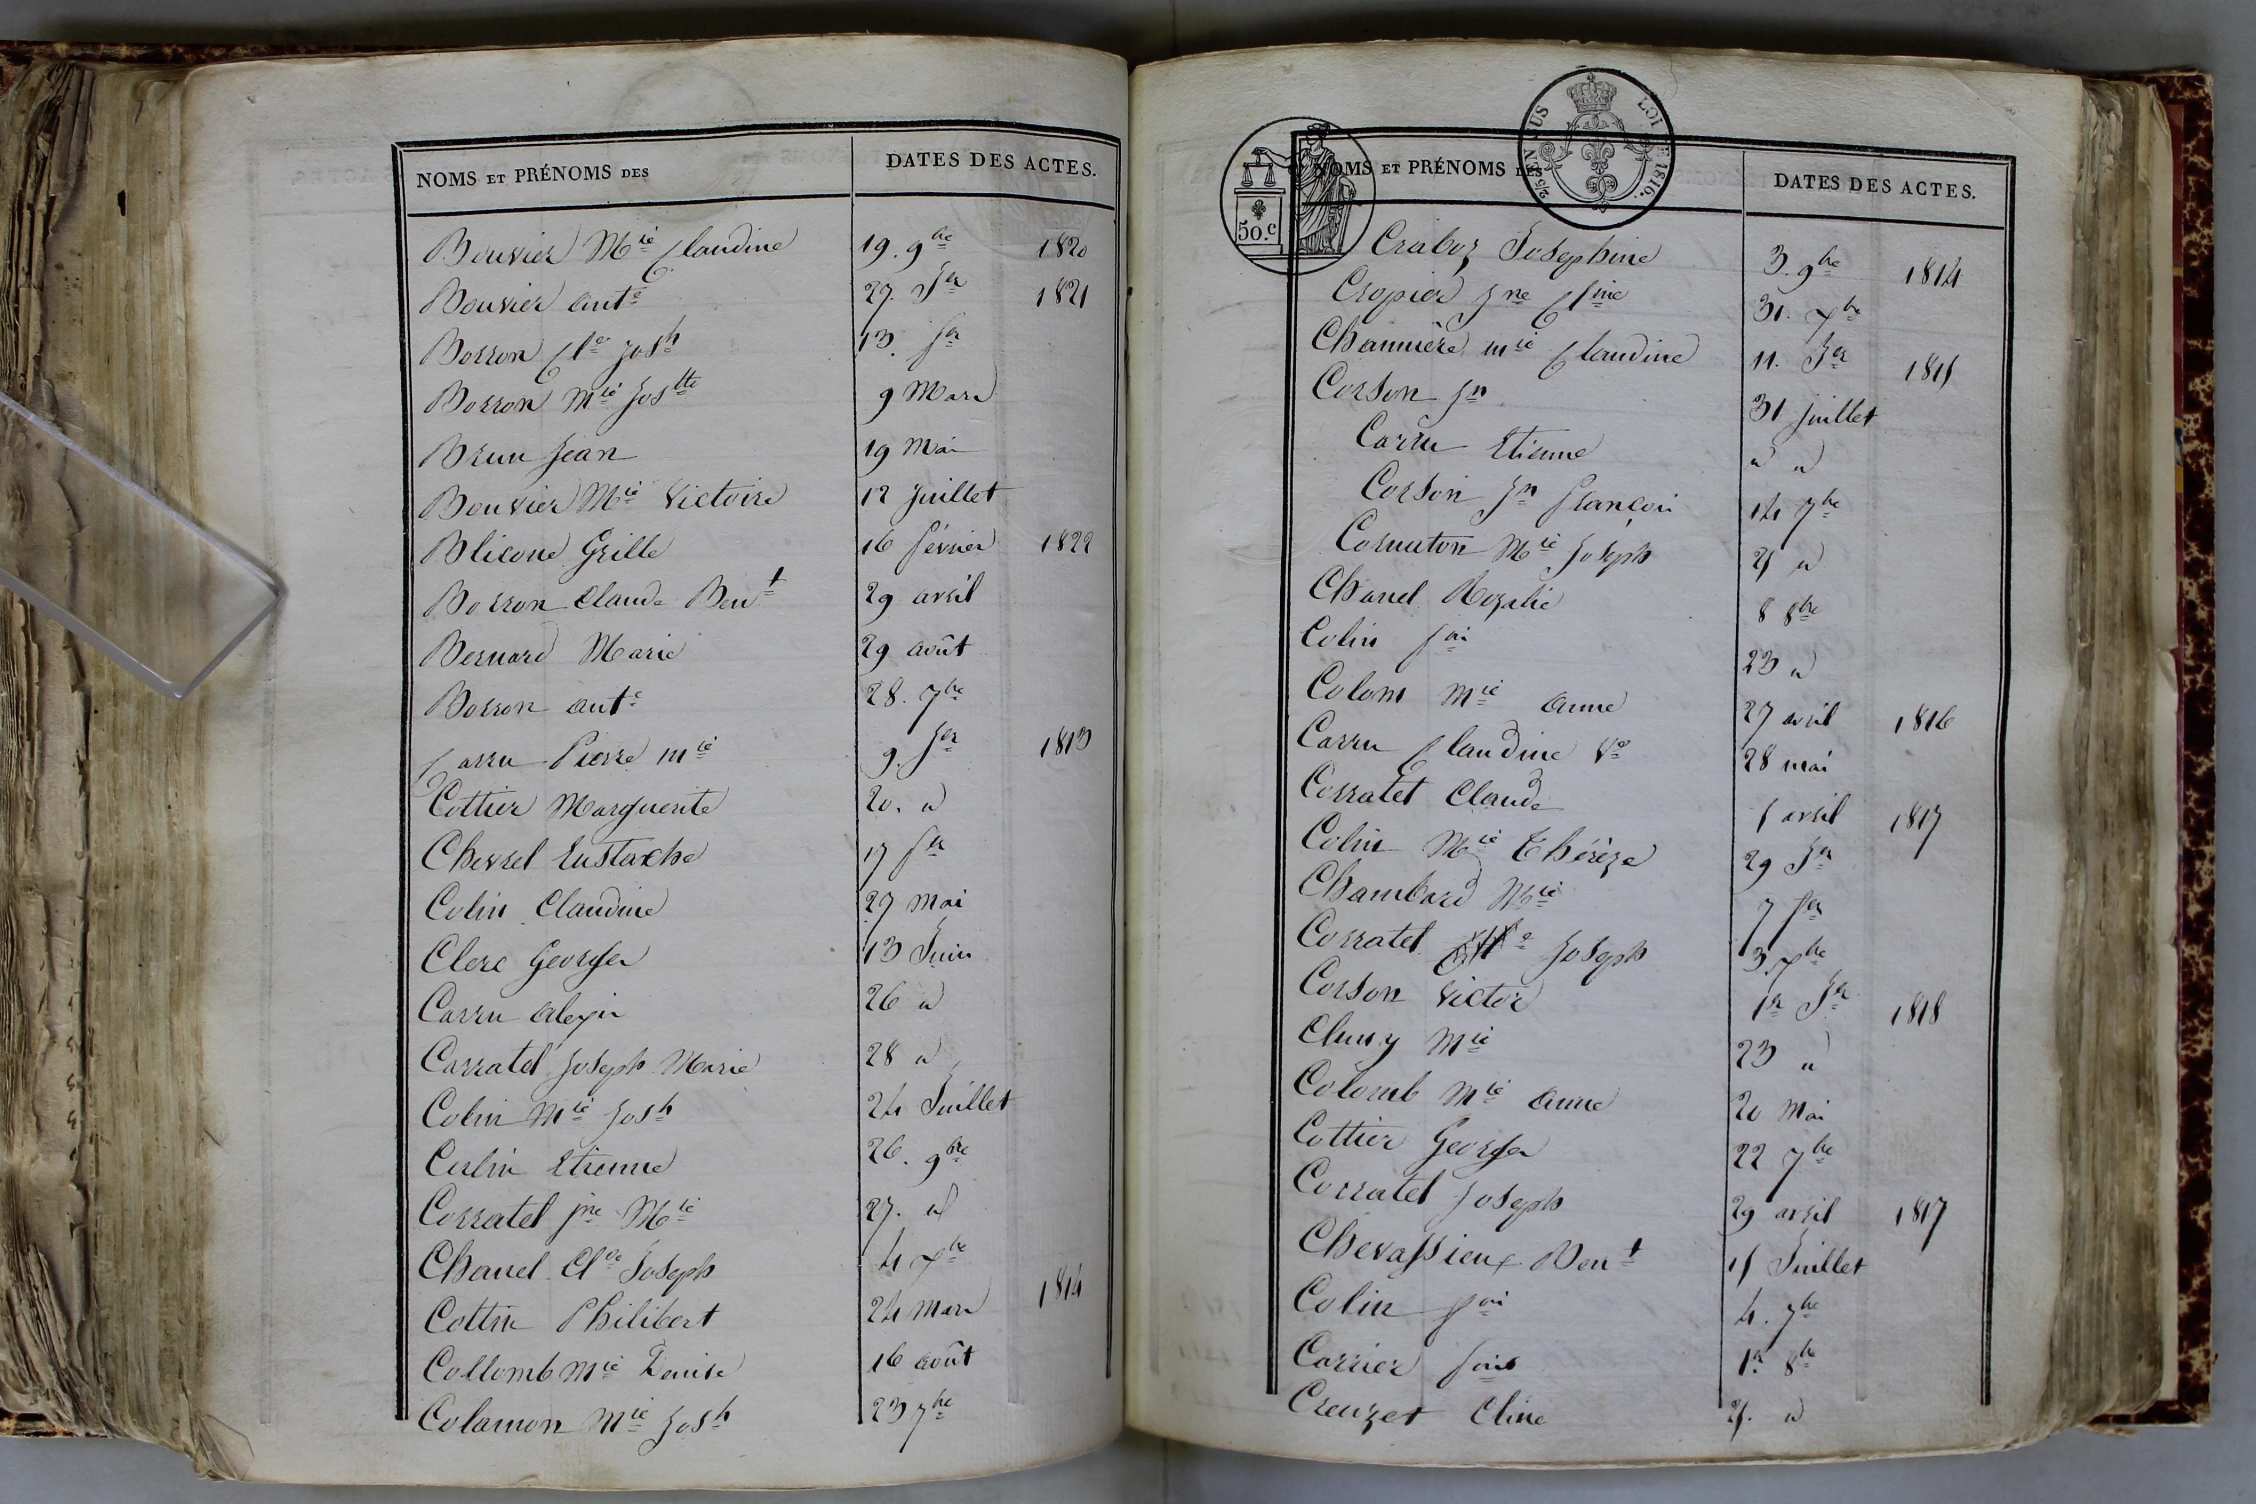 NOMS ET PRÉNOMS DES DATES DES ACTES.
Bouvier Mie Claudine 19. 9bre 1820
Bouvier ante 27. Jer 1821
Borron Cle Josh 13. fer
Borron Mie Joste 9 Mars
Brun Jean 19 Mai
Bouvier Mie Victoire 12 Juillet
Blicone Grille 16 février 1822
Borron Claude Bent 29 avril
Bernard Marie 29 août
Borron ante 28. 7bre
Carru Pierre Mie 9. Jer 1813
Cottier Marguerite 20. "
Chevrel Eustache 17 fer
Colin Claudine 27 Mai
Clerc Georges 13 Juin
Carru alexis 26 "
Carratel Joseph Marie 28 "
Colin Mie Josh 24 Juillet
Corlin Etienne 26. 9bre
Corratel jne Mie 27. "
Chanel Clde Joseph 4 xbre
Cottin Philibert 24 mars 1814
Collomb Mie Denise 16 août
Colamon Mie Josh 23 7bre
50.C
25 EN SUS LOI DE 1816.
NOMS ET PRÉNOMS DES DATES DES ACTES.
Craboz Josephine 3. 9bre 1814
Cropier Jne Cline 31. xbre
Channière Mie Claudine 11. Jer 1815
Corson Jn 31 juillet
Carru Etienne " "
Corson Jn françois 14 7bre
Cornaton Mie Joseph 25 "
Chanel Rozalie 8 8bre
Colin fois 23 "
Colom Mie anne 27 avril 1816
Carru Claudine Ve 28 mai
Corratet Claude 5 avril 1817
Colin Mie Thérèze 29 Jer
Chambard Mie 7 fer
Corratel Joseph 3 xbre
Corson Victor 1er Jer 1818
Cluny Mie 23 "
Colomb Mie anne 20 Mai
Cottier Georges 22 7bre
Corratel Joseph 29 avril 1817
Chevassieux Bent 15 Juillet
Colin fois 4. 7bre
Carrier fois 1er 8bre
Creuzet Cline 25. "